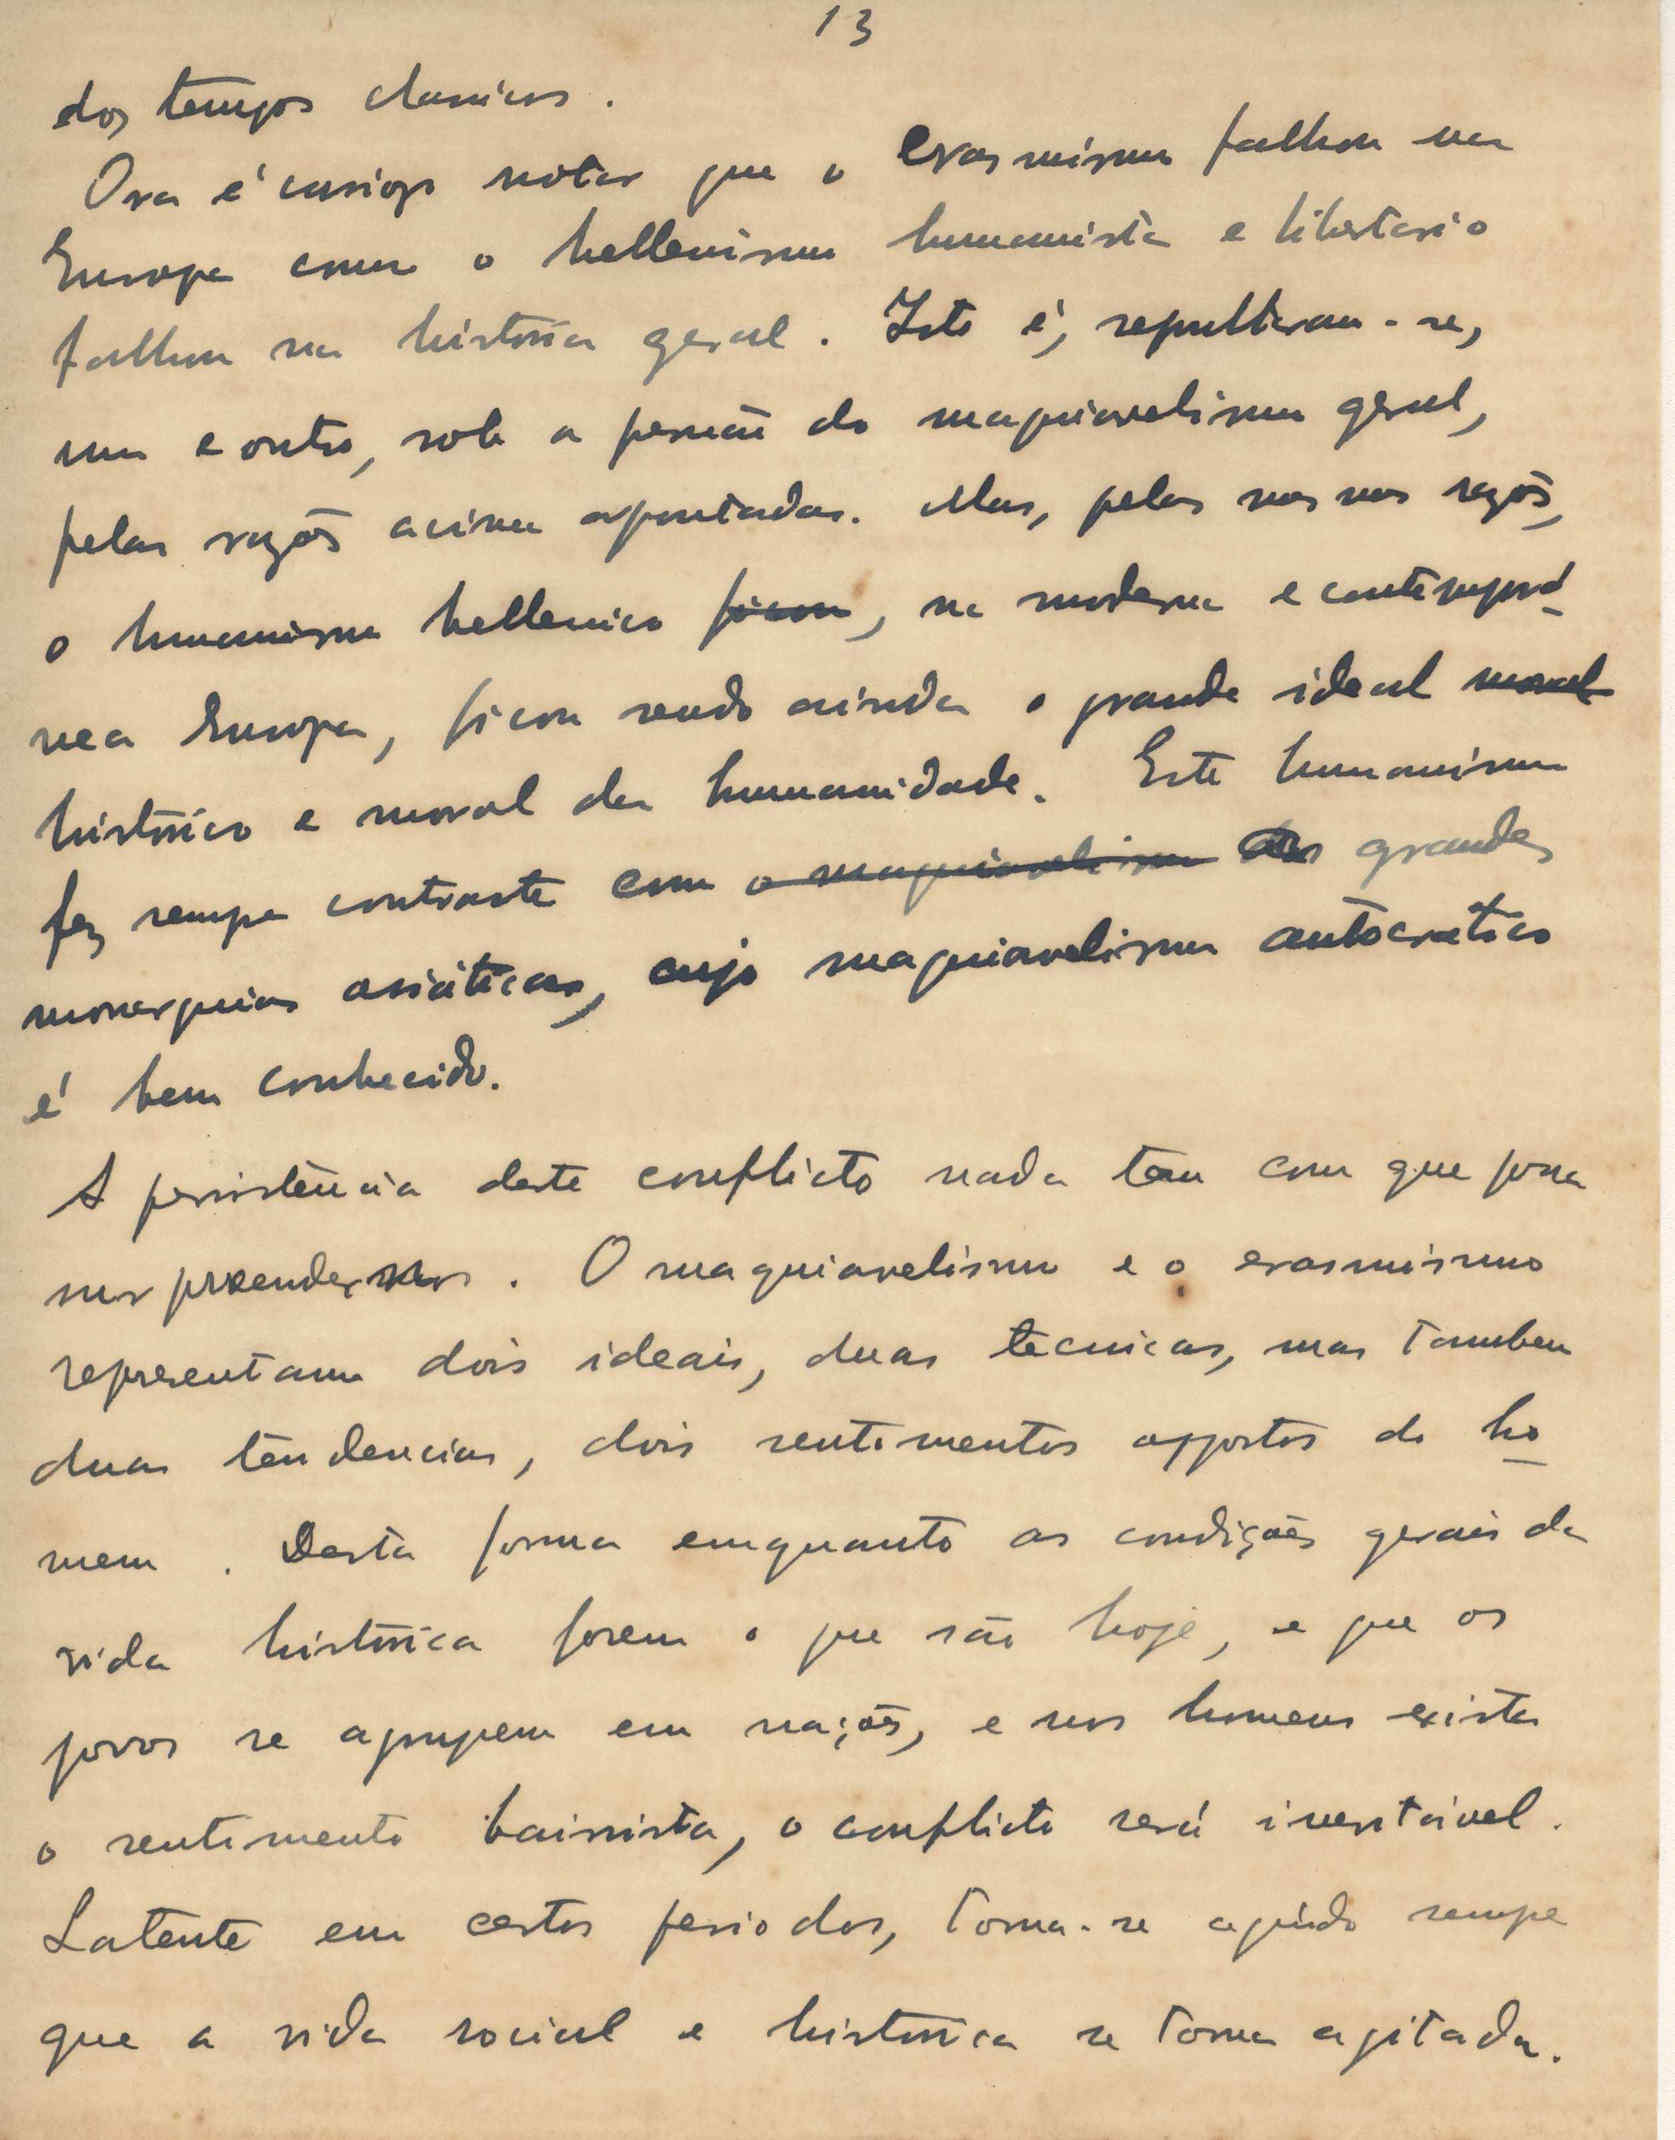 13
dos tempos classicos.
Ora é curioso notar que o erasmismo falhou na
Europa como o hellenismo humanista e libertario
falhou na história geral. Isto é, sepultaram-se,
um e outro, sob a pressão do maquiavelismo geral,
pelas razões acima apontadas. Mas, pelas mesmas razões,
o humanismo hellenico ficou, na moderna e contemporâ-
nea Europa, ficou sendo ainda o grande ideal moral
histórico e moral da humanidade. Este humanismo
fez sempre contraste com o maquiavelismo das grandes
monarquias asiáticas, cujo maquiavelismo autocratico
é bem conhecido.
A persistência deste conflicto nada tem com que possa
surpreender-nos. O maquiavelismo e o erasmismo
representam dois ideais, duas tecnicas, mas tambem
duas tendencias, dois sentimentos oppostos do ho-
mem. Desta forma emquanto as condições gerais da
vida histórica forem o que são hoje, e que os
povos se agrupem em nações, e nos homens exista
o sentimento bairrista, o conflicto será inevitável.
Latente em certos periodos, torna-se agúdo sempre
que a vida social e histórica se torna agitada.